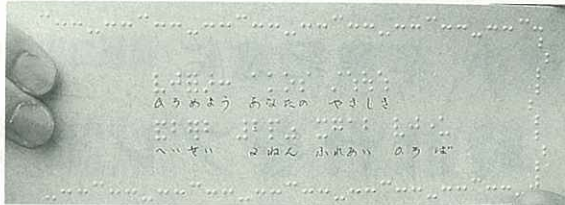 ひろめよう あなたの やさしさ
へいせい 2ねん ふれあい ひろば